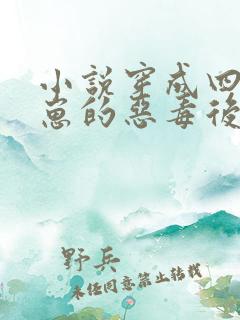 小說穿成四
崽的惡毒後
野兵
未經同意禁止轉載